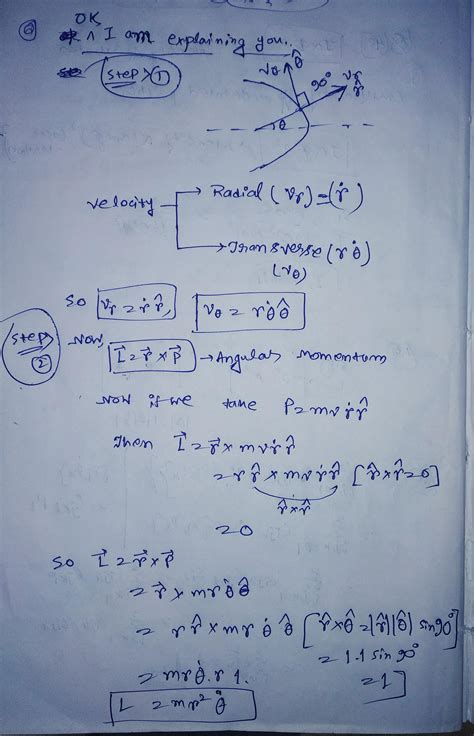 OK
⑥ I am explaining you..
Step ①
v_θ θ̂ 90° v_r r̂
θ
velocity → Radial (v_r) = (ṙ)
→ Transverse (r θ̇)
(v_θ)
So v_r = ṙ r̂, v_θ = r θ̇ θ̂
Step ②
Now, L⃗ = r⃗ × P⃗ → Angular Momentum
Now if we take P = m v ṙ r̂
Then L⃗ = r⃗ × m v ṙ r̂
= r r̂ × m v ṙ r̂ [r̂ × r̂ = 0]
r̂ × r̂
= 0
So L⃗ = r⃗ × P⃗
= r⃗ × m r θ̇ θ̂
= r r̂ × m r θ̇ θ̂ [r̂ × θ̂ = |r̂| |θ̂| sin 90°
= 1.1 sin 90°
= m r θ̇ . r 1. = 1]
L = m r² θ̇